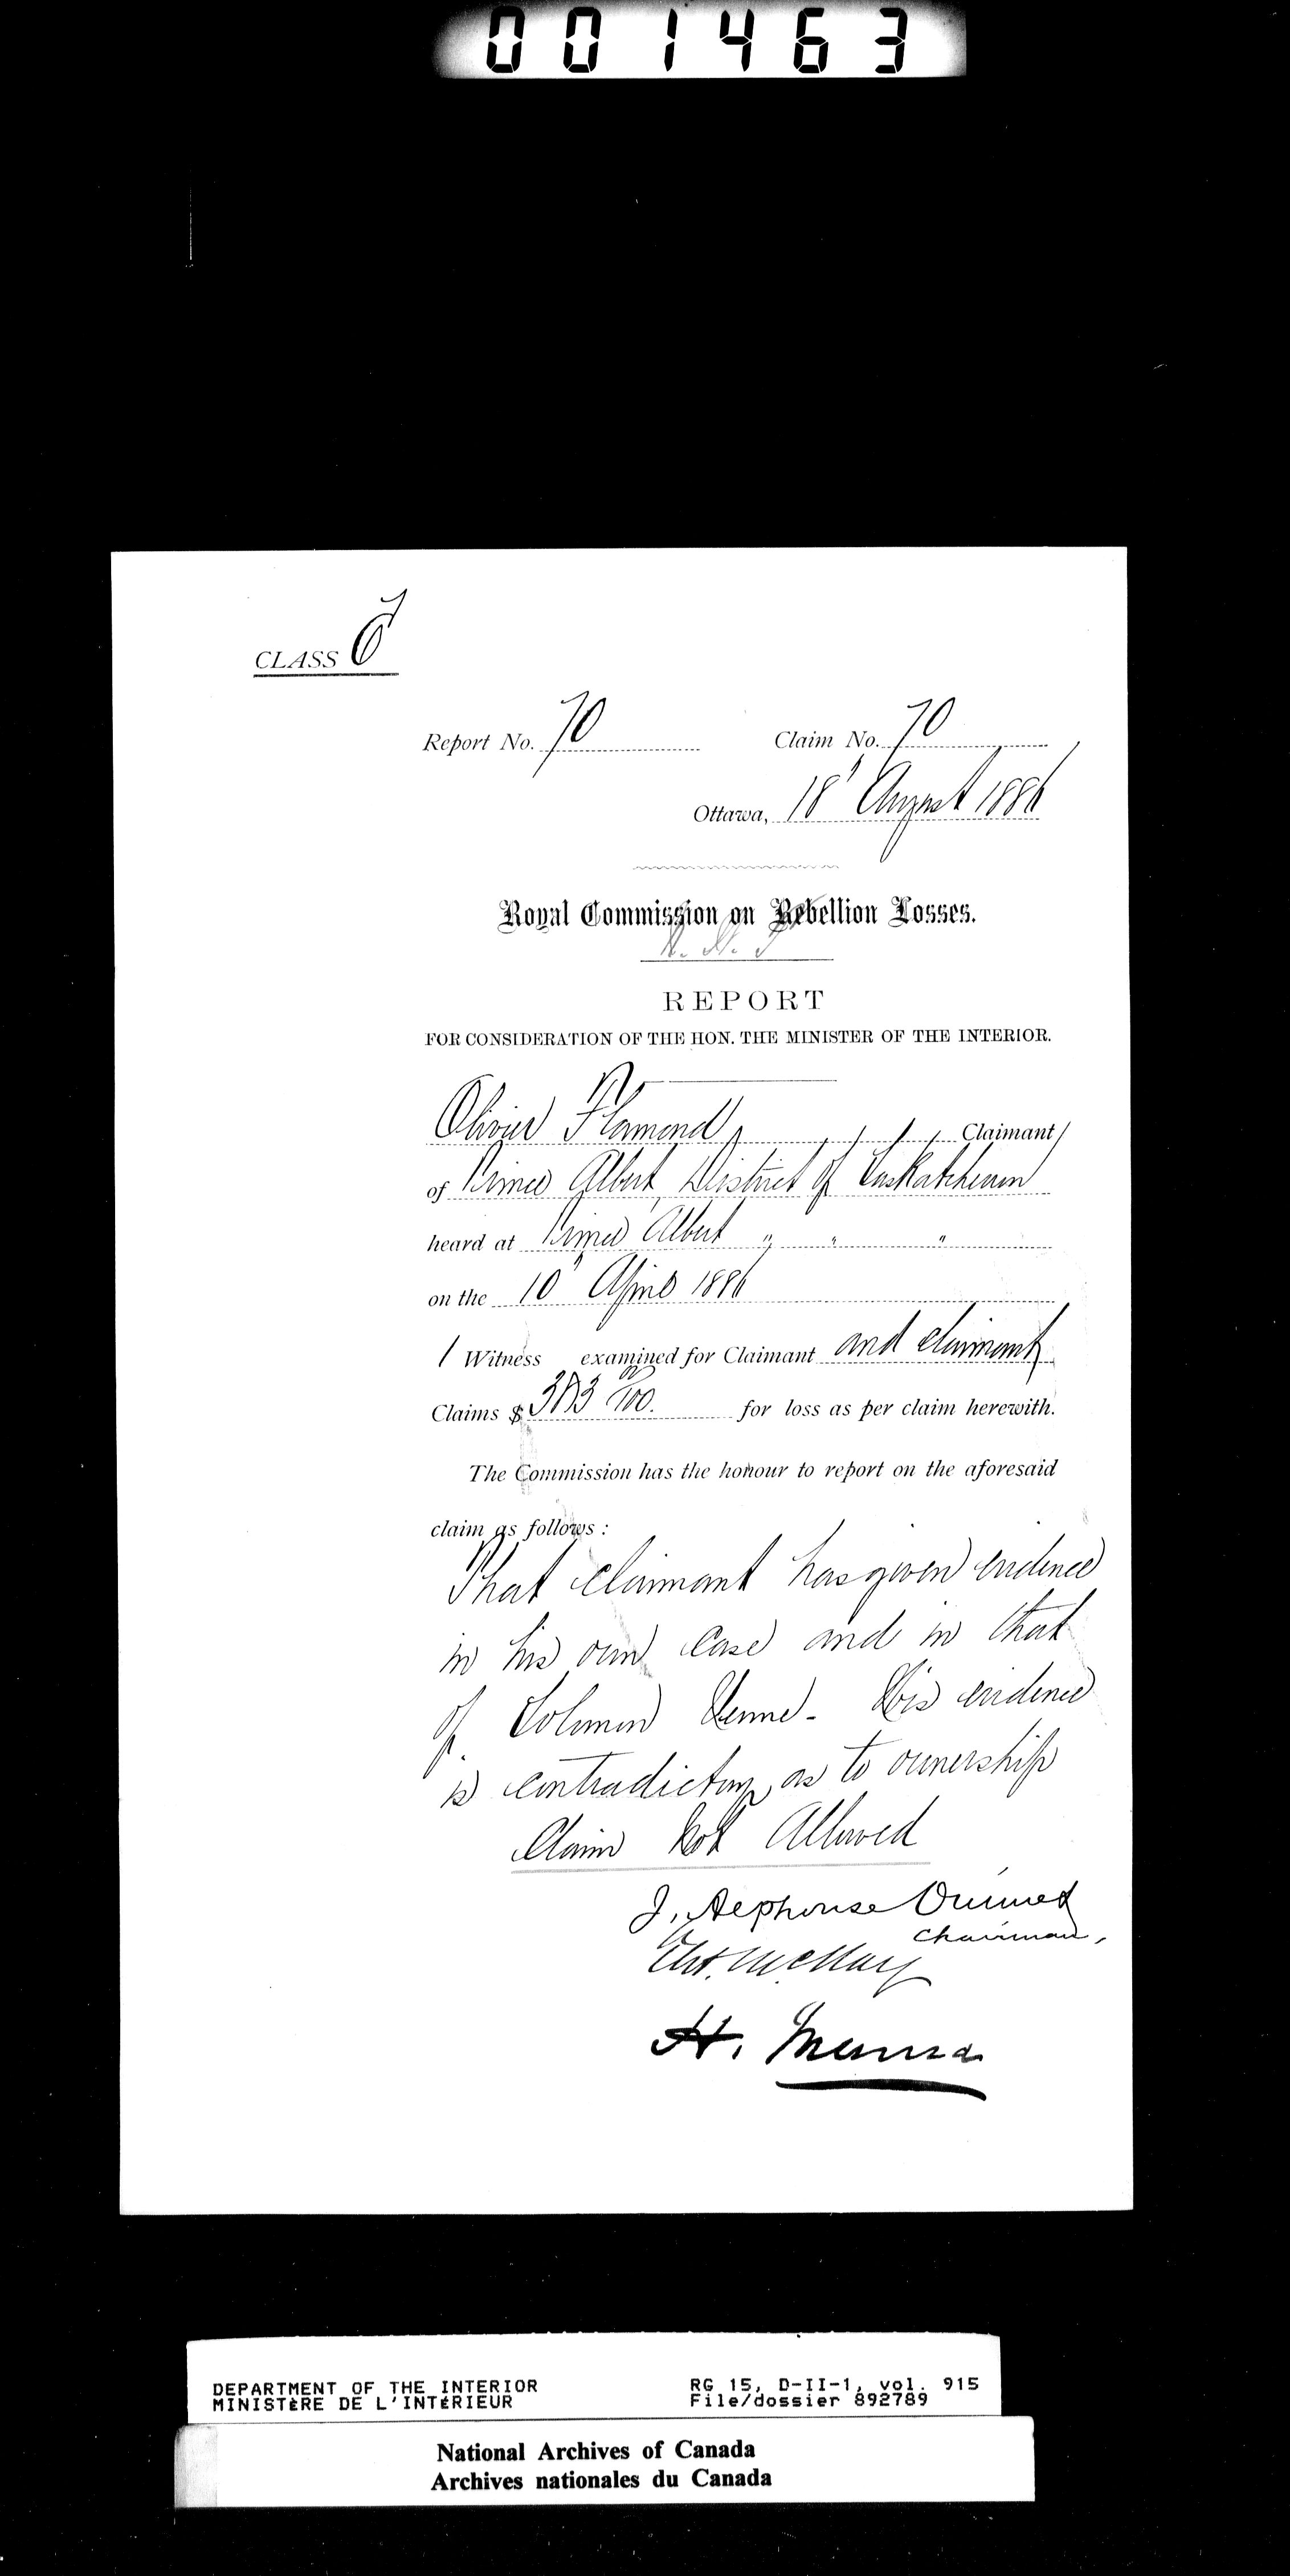 001463
CLASS 6
Report No. 70 Claim No. 70
Ottawa, 18" August 1886
Royal Commission on Rebellion Losses.
REPORT
FOR CONSIDERATION OF THE HON. THE MINISTER OF THE INTERIOR.
Olivier Flamond Claimant
of Prince Albert, District of Saskatchewan
heard at Prince Albert " " "
on the 10" April 1886
1 Witness examined for Claimant and claimant
Claims $ 00/100. for loss as per claim herewith.
The Commission has the honour to report on the aforesaid
claim as follows :
That claimant has given evidence
in his own case and in that
of Solomon Venne - His evidence
is contradictory as to ownership
Claim Not Allowed
J. Alphonse Ouimet
Chairman,
H. Muma
DEPARTMENT OF THE INTERIOR RG 15, D-II-1, vol. 915
MINISTÈRE DE L'INTÉRIEUR File/dossier 892789
National Archives of Canada
Archives nationales du Canada